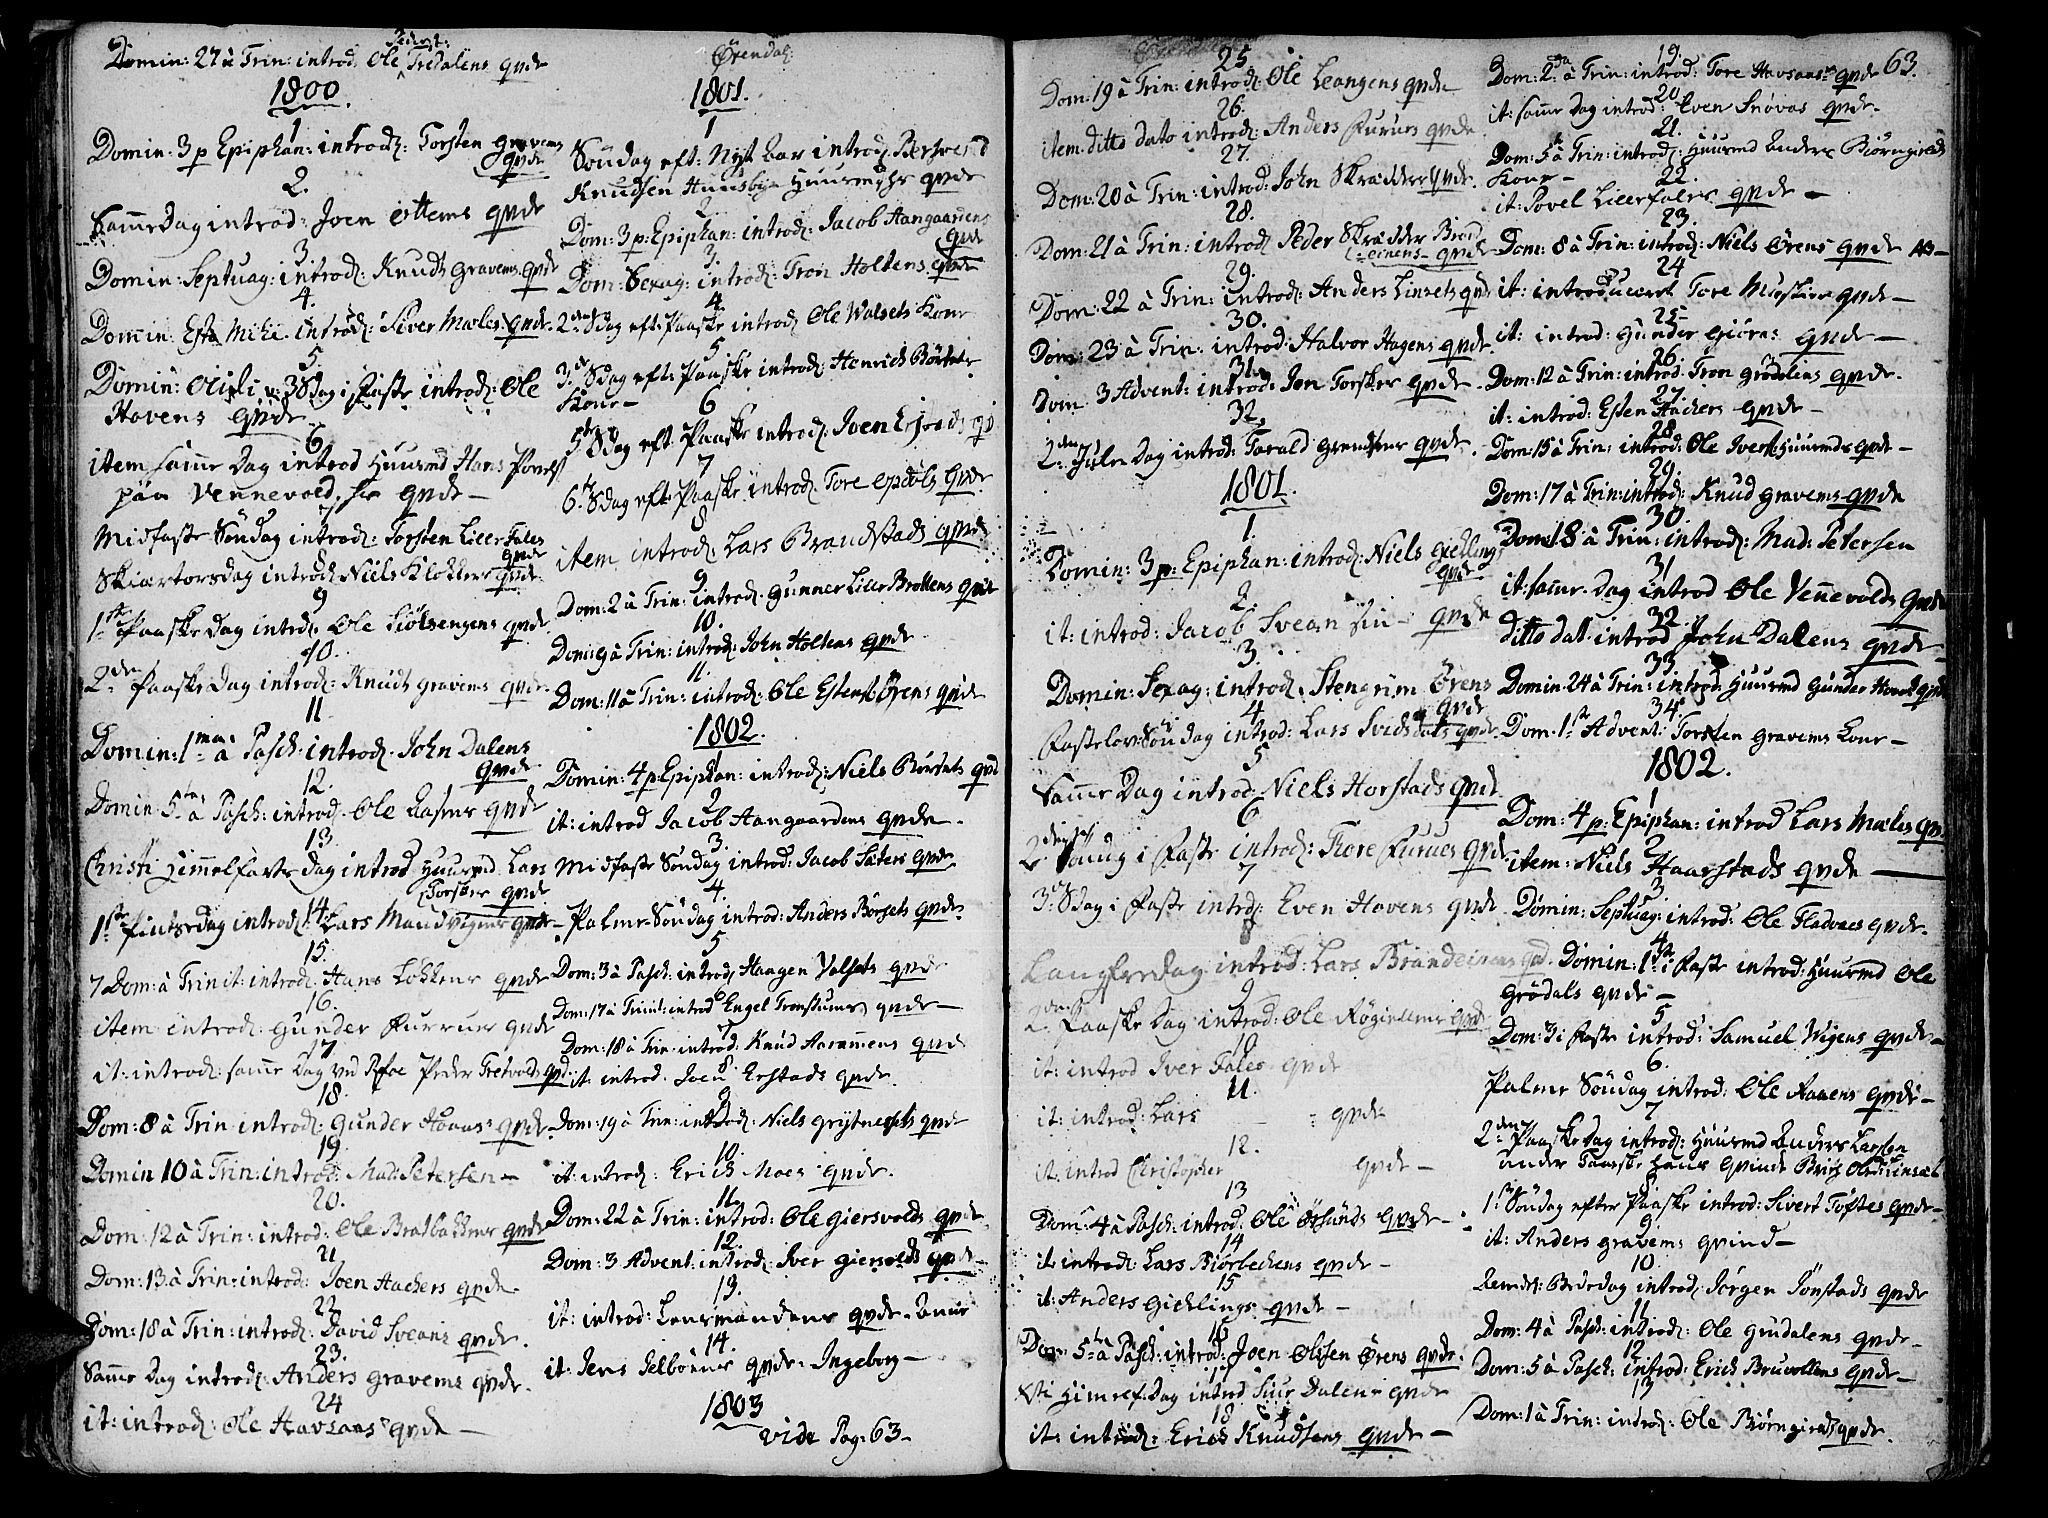 Domin: 27 à Trin: introd. Ole Pederst: Tredalens qvde
1800.
1
Domin: 3 p Epiphan: introd: Torsten gravems
qvde
2.
Samme Dag introd: Joen Ottems qvde
3.
Domin: Septuag: introd: Knuds gravems qvde
4.
Domin: Esto Mihi introd: Siver Mæles qvde.
5
Domin: Oculi v: 3 Sdag i Faste introd: Ole
Hovens qvde
6
item samme Dag introd Huusmd Hans Povels
paa Vennevold, hr qvde –
7
Midfaste Søndag introd: Torsten Liller Fales
qvde
8
Skiærtorsdag introd Niels Klokkers qvde.
9
1ste Paaske Dag introd: Ole Siølsengens qvde
10.
2den Paaske Dag introd: Knuds gravems qvde.
11
Domin: 1ma à Pasch: introd: John Dalens
qvde
12.
Domin: 5ta à Pasch: introd: Ole Aasens qvde
13
Christi Himmelfarts dag introd Huusmd. Lars
Torskes qvde
14
1ste Pintsedag introd: Lars Maudvignes qvde –
15.
7 Dom: à Trinit: introd: Hans Løkkens qvde
16.
item introd: gunder Furrues qvde
17
it: introd: samme Dag Peder Tretvolds qvd.
18
Dom: 8 à Trin introd: gunder Hoaas qvde.
19
Domin 10 à Trin: introd: Mad: Petersen –
20.
Dom: 12 à Trin: introd: Ole Bratbakkens qvde
21
Dom: 13 à Trin: introd: Joen Hachers qvde.
22
Dom: 18 à Trin: introd: David Sveans qvde.
23.
Samme Dag introd: Anders gravems qvde.
24
it: introd: Ole Havsaas qvde –
Ørendal:
1801.
1
Søndag eft: Nyt Aar introd: Bersvend
Knudsen Huusbye Huusmdhs qvde
2
Dom: 3 p: Epiphan: introd: Jacob Aangaardens
qvd
3.
Dom: Sexag: introd: Tron Holtens qvde
4
2den Sdag eft: Paaske introd Ole Walsets Kone
5
3die Sdag eft: Paaske introd: Henrich Børsets
Kone –
6
5te Sdag eft Paaske introd: Joen Erstads qvd
7
6te Sdag eft: Paaske introd: Tore Opdøls qvde
8
item introd: Lars Brandstads qvde
9
Dom: 2 à Trin: introd: gunner Liller Brottens qvde
10.
Dom: 9 à Trin: introd: John Holtens qvde
11.
Dom: 11 à Trin: introd: Ole Estenst Ørens qvde
1802.
1
Domin: 4 p: Epiphan: introd: Niels Børsets qvd
2
it: introd Jacob Aangaardens qvde.
3.
Midfaste Søndag introd: Jacob Sæters qvde
4.
Palme Søndag introd: Anders Børsets qvde.
5
Dom: 3 à Pasch: introd: Haagen Valsets qvde
6
Dom: 17 à Trinit: introd Engel Tronstuens qvde –
7
Dom: 18 à Trin: introd: Knud Aarammens qvde
8
it: introd: Joen Erstads qvde.
9
Dom: 19 à Trin: introd: Niels Grytnesets qvde
10.
it: introd: Erich Moes qvde.
11
Dom: 22 à Trin: introd: Ole giersvolds qvde.
12.
Dom: 3 Advent: introd: Iver giersvolds qvde –
13.
it: introd: Lensmandens qvde. Anne
14.
it: Jens Jelbones qvde. Ingeborg –
1803
vide Pag: 63 –
25
Dom: 19 à Trin: introd: Ole Leangens qvde
26.
item: ditto dato introd: Anders Furues qvde
27.
Dom: 20 à Trin: introd: John Skrædders qvde.
28.
Dom: 21 à Trin: introd Peder Skrædder Brand
einens – qvde
29.
Dom: 22 à Trin: introd: Anders Linsets qvde
30.
Dom: 23 à Trin: introd: Halvor Hagens qvde.
31.
Dom 3 Advent: introd: Jon Torskes qvde.
32.
2den Jule Dag introd: Tarald grendsens qvde.
1801.
1.
Domin: 3 p: Epiphan: introd: Niels giellings
qvde
2.
it: introd: Jacob Svean hu – qvde
3.
Domin: Sexag: introd. Stengrim Ørens
qvde
4
Fastelovs Søndag introd: Lars Svisdals qvde.
5
Samme Dag introd: Niels Horstads qvde.
6
2den Sønndag i Faste introd: Tore Furues qvde
7
3die Sdag i Faste introd: Even Hovens qvde
8
Langfredag introd: Lars Brandeinens qvd.
9
2den Paaske Dag introd: Ole Røgiellens qvde
10
it: introd Iver Fales qvde
11.
it: introd: Lars – : qvde
12.
it: introd Christopher qvde –
13
Dom: 4 à Pasch: introd: Ole Øssunds qvde –
14
it: introd: Lars Biørbechens qvde –
15
it: Anders gichlings qvde –
16
Dom: 5ta à Pasch: introd: Joen Olssen Ørens qvde.
17
Xsti Himelf. Dag introd Siur Dalens qvde
18
it: introd: Erich Knudsens qvde –
63.
19.
Dom: 2da à Trin: introd: Tore Havsaas qvde
20
it: samme Dag introd: Even Snøvas qvde.
21.
Dom: 5te à Trin: introd: Huusmd Anders Biørngields
Kone –
22.
it: Povel Lillefales qvde –
23.
Dom: 8 à Trin: introd: Niels Ørens qvde
24
it: introduceret Tore Moskies qvde –
25
it: introd: gunder giøras qvde –
26.
Dom: 12 à Trin: introd: Tron grødalens qvde.
27
it: introd: Esten Hachers qvde –
28.
Dom: 15 à Trin: introd: Ole Iverst Huusmds qvde –
29.
Dom: 17 à Trin: introd: Knud gravems qvde
30
Dom: 18 à Trin: introd: Mad: Petersen
31
it: samme Dag introd Ole Vennevolds qvde
32
ditto dat: introd John Dalens qvde
33
Domin: 24 à Trin: introd: Huusmd gunder Hovens qvde
34.
Dom: 1ste Advent: Torsten gravems Kone –
1802.
1
Dom: 4 p: Epiphan: introd Lars Mæles qvd
2
item: Niels Haarstads qvde
3
Domin: Septuag: introd: Ole Fladvaes qvde.
4
Domin: 1ste i Faste introd: Huusmd Ole
grødals qvde –
5
Dom: 3 i Faste introd: Samuel Wigens qvde –
6.
Palme Søndag introd: Ole Aanens qvde –
7
2den Paaske Dag introd: Huusmd Anders Larsen
under Taaske hans qvinde
8
1ste Søndag efter Paaske introd: Sivert Toftes qvde –
9
it: Anders gravems qvind –
10
Almdel: Bededag introd: Jørgen Tonstads qvde
11
Dom: 4 à Pasch: introd: Ole grudalens qvde –
12
Dom: 5 à Pasch: introd: Erich Bruvollens qvde –
13
Dom: 1 à Trin: introd: Ole Biørngiælds qvde.